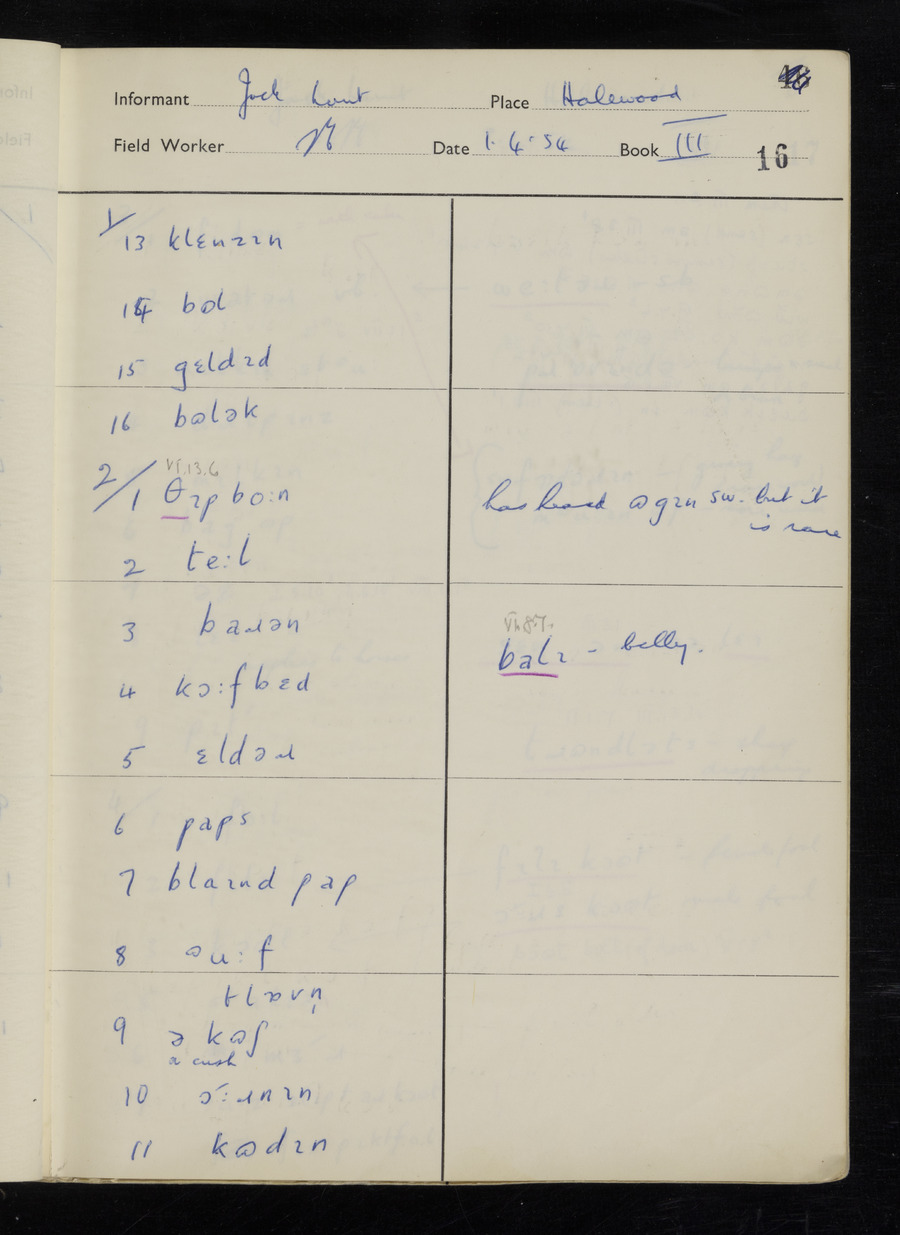 Informant Jack Lunt Place Halewood
Field Worker Date 1·4·54 Book III 16
1/
13 klɛnzɪn
14 bɷl
15 gɛldɪd
16 bɷlək
VI.13.6
2/1 θɪp bo:n
has heard ɷ gɪn sw. but it
is rare
2 te:l
3 baɹən
VI.8.7.
balɪ - belly.
4 kɔ:f bɛd
5 ɛldəɹ
6 paps
7 blaɪnd pap
8 ɷu:f
tlɒvn̩
9 ə kɷʃ
a cush
10 ɔ:ɹnɪn
11 kɷdɪn